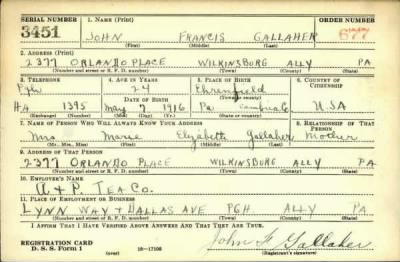 SERIAL NUMBER 1. NAME (Print) ORDER NUMBER
3451 JOHN FRANCIS GALLAHER 677
(First) (Middle) (Last)
2. ADDRESS (Print)
2377 ORLANDO PLACE WILKINSBURG ALLY PA
(Number and street or R. F. D. number) (Town) (County) (State)
3. TELEPHONE 4. AGE IN YEARS 5. PLACE OF BIRTH 6. COUNTRY OF CITIZENSHIP
Pgh 24 Ehrenfeld
DATE OF BIRTH (Town or county)
HA 1395 May 7 1916 Pa Cambria Co USA
(Exchange) (Number) (Mo.) (Day) (Yr.) (State or country)
7. NAME OF PERSON WHO WILL ALWAYS KNOW YOUR ADDRESS 8. RELATIONSHIP OF THAT PERSON
Mrs Marie Elizabeth Gallaher Mother
(Mr., Mrs., Miss) (First) (Middle) (Last)
9. ADDRESS OF THAT PERSON
2377 ORLANDO PLACE WILKINSBURG ALLY PA
(Number and street or R. F. D. number) (Town) (County) (State)
10. EMPLOYER'S NAME
A & P. TEA CO.
11. PLACE OF EMPLOYMENT OR BUSINESS
LYNN WAY + DALLAS AVE PGH ALLY PA
(Number and street or R. F. D. number) (Town) (County) (State)
I AFFIRM THAT I HAVE VERIFIED ABOVE ANSWERS AND THAT THEY ARE TRUE.
REGISTRATION CARD
D. S. S. Form 1 16—17105 John F Gallaher
(Registrant's signature)